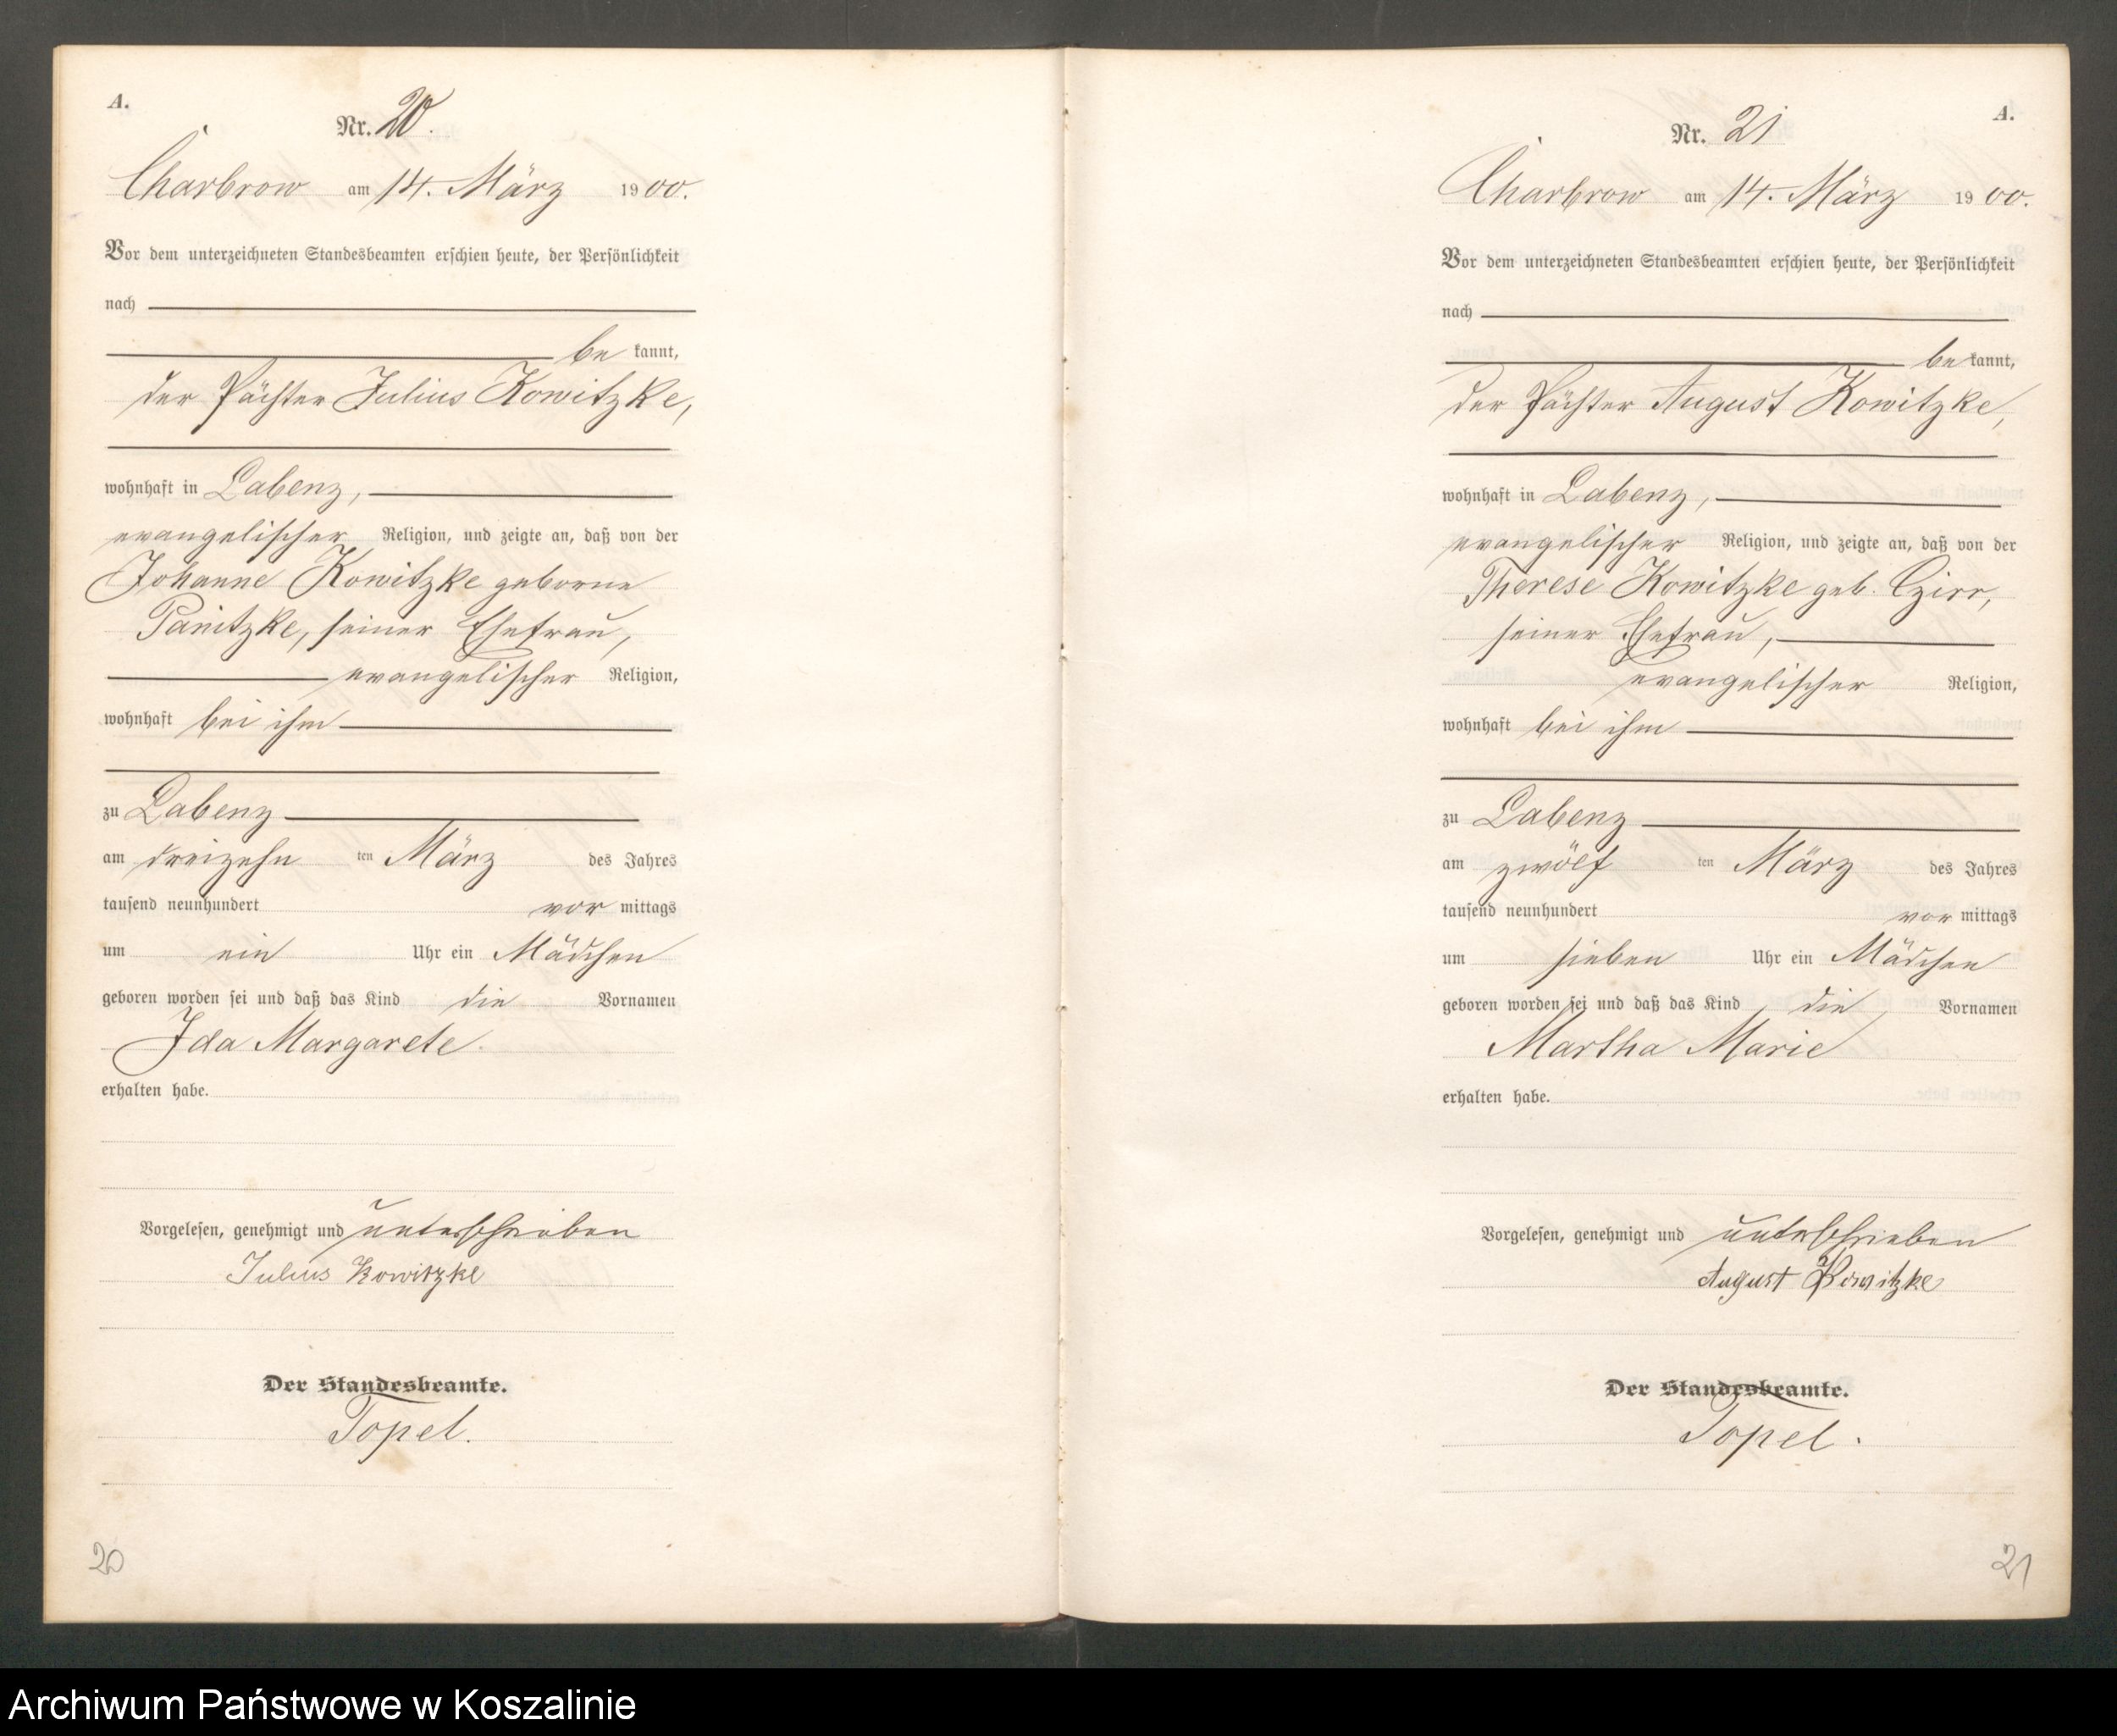 A.
Nr. 20.
Charbrow am 14. März 1900.
Vor dem unterzeichneten Standesbeamten erschien heute, der Persönlichkeit
nach
be kannt,
der Pächter Julius Kowitzke,
wohnhaft in Labenz,
evangelischer Religion, und zeigte an, daß von der
Johanne Kowitzke geborne
Panitzke, seiner Ehefrau,
evangelischer Religion,
wohnhaft bei ihm
zu Labenz
am dreizehn ten März des Jahres
tausend neunhundert vor mittags
um ein Uhr ein Mädchen
geboren worden sei und daß das Kind die Vornamen
Ida Margarete.
erhalten habe.
Vorgelesen, genehmigt und unterschrieben
Julius Kowitzke
Der Standesbeamte.
Topel.
20
A.
Nr. 21
Charbrow am 14. März 1900.
Vor dem unterzeichneten Standesbeamten erschien heute, der Persönlichkeit
nach
be kannt,
der Pächter August Kowitzke,
wohnhaft in Labenz,
evangelischer Religion, und zeigte an, daß von der
Therese Kowitzke geb. Czirr,
seiner Ehefrau,
evangelischer Religion,
wohnhaft bei ihm
zu Labenz
am zwölf ten März des Jahres
tausend neunhundert vor mittags
um sieben Uhr ein Mädchen
geboren worden sei und daß das Kind die Vornamen
Martha Marie
erhalten habe.
Vorgelesen, genehmigt und unterschrieben
August Kowitzke
Der Standesbeamte.
Topel.
21
Archiwum Państwowe w Koszalinie